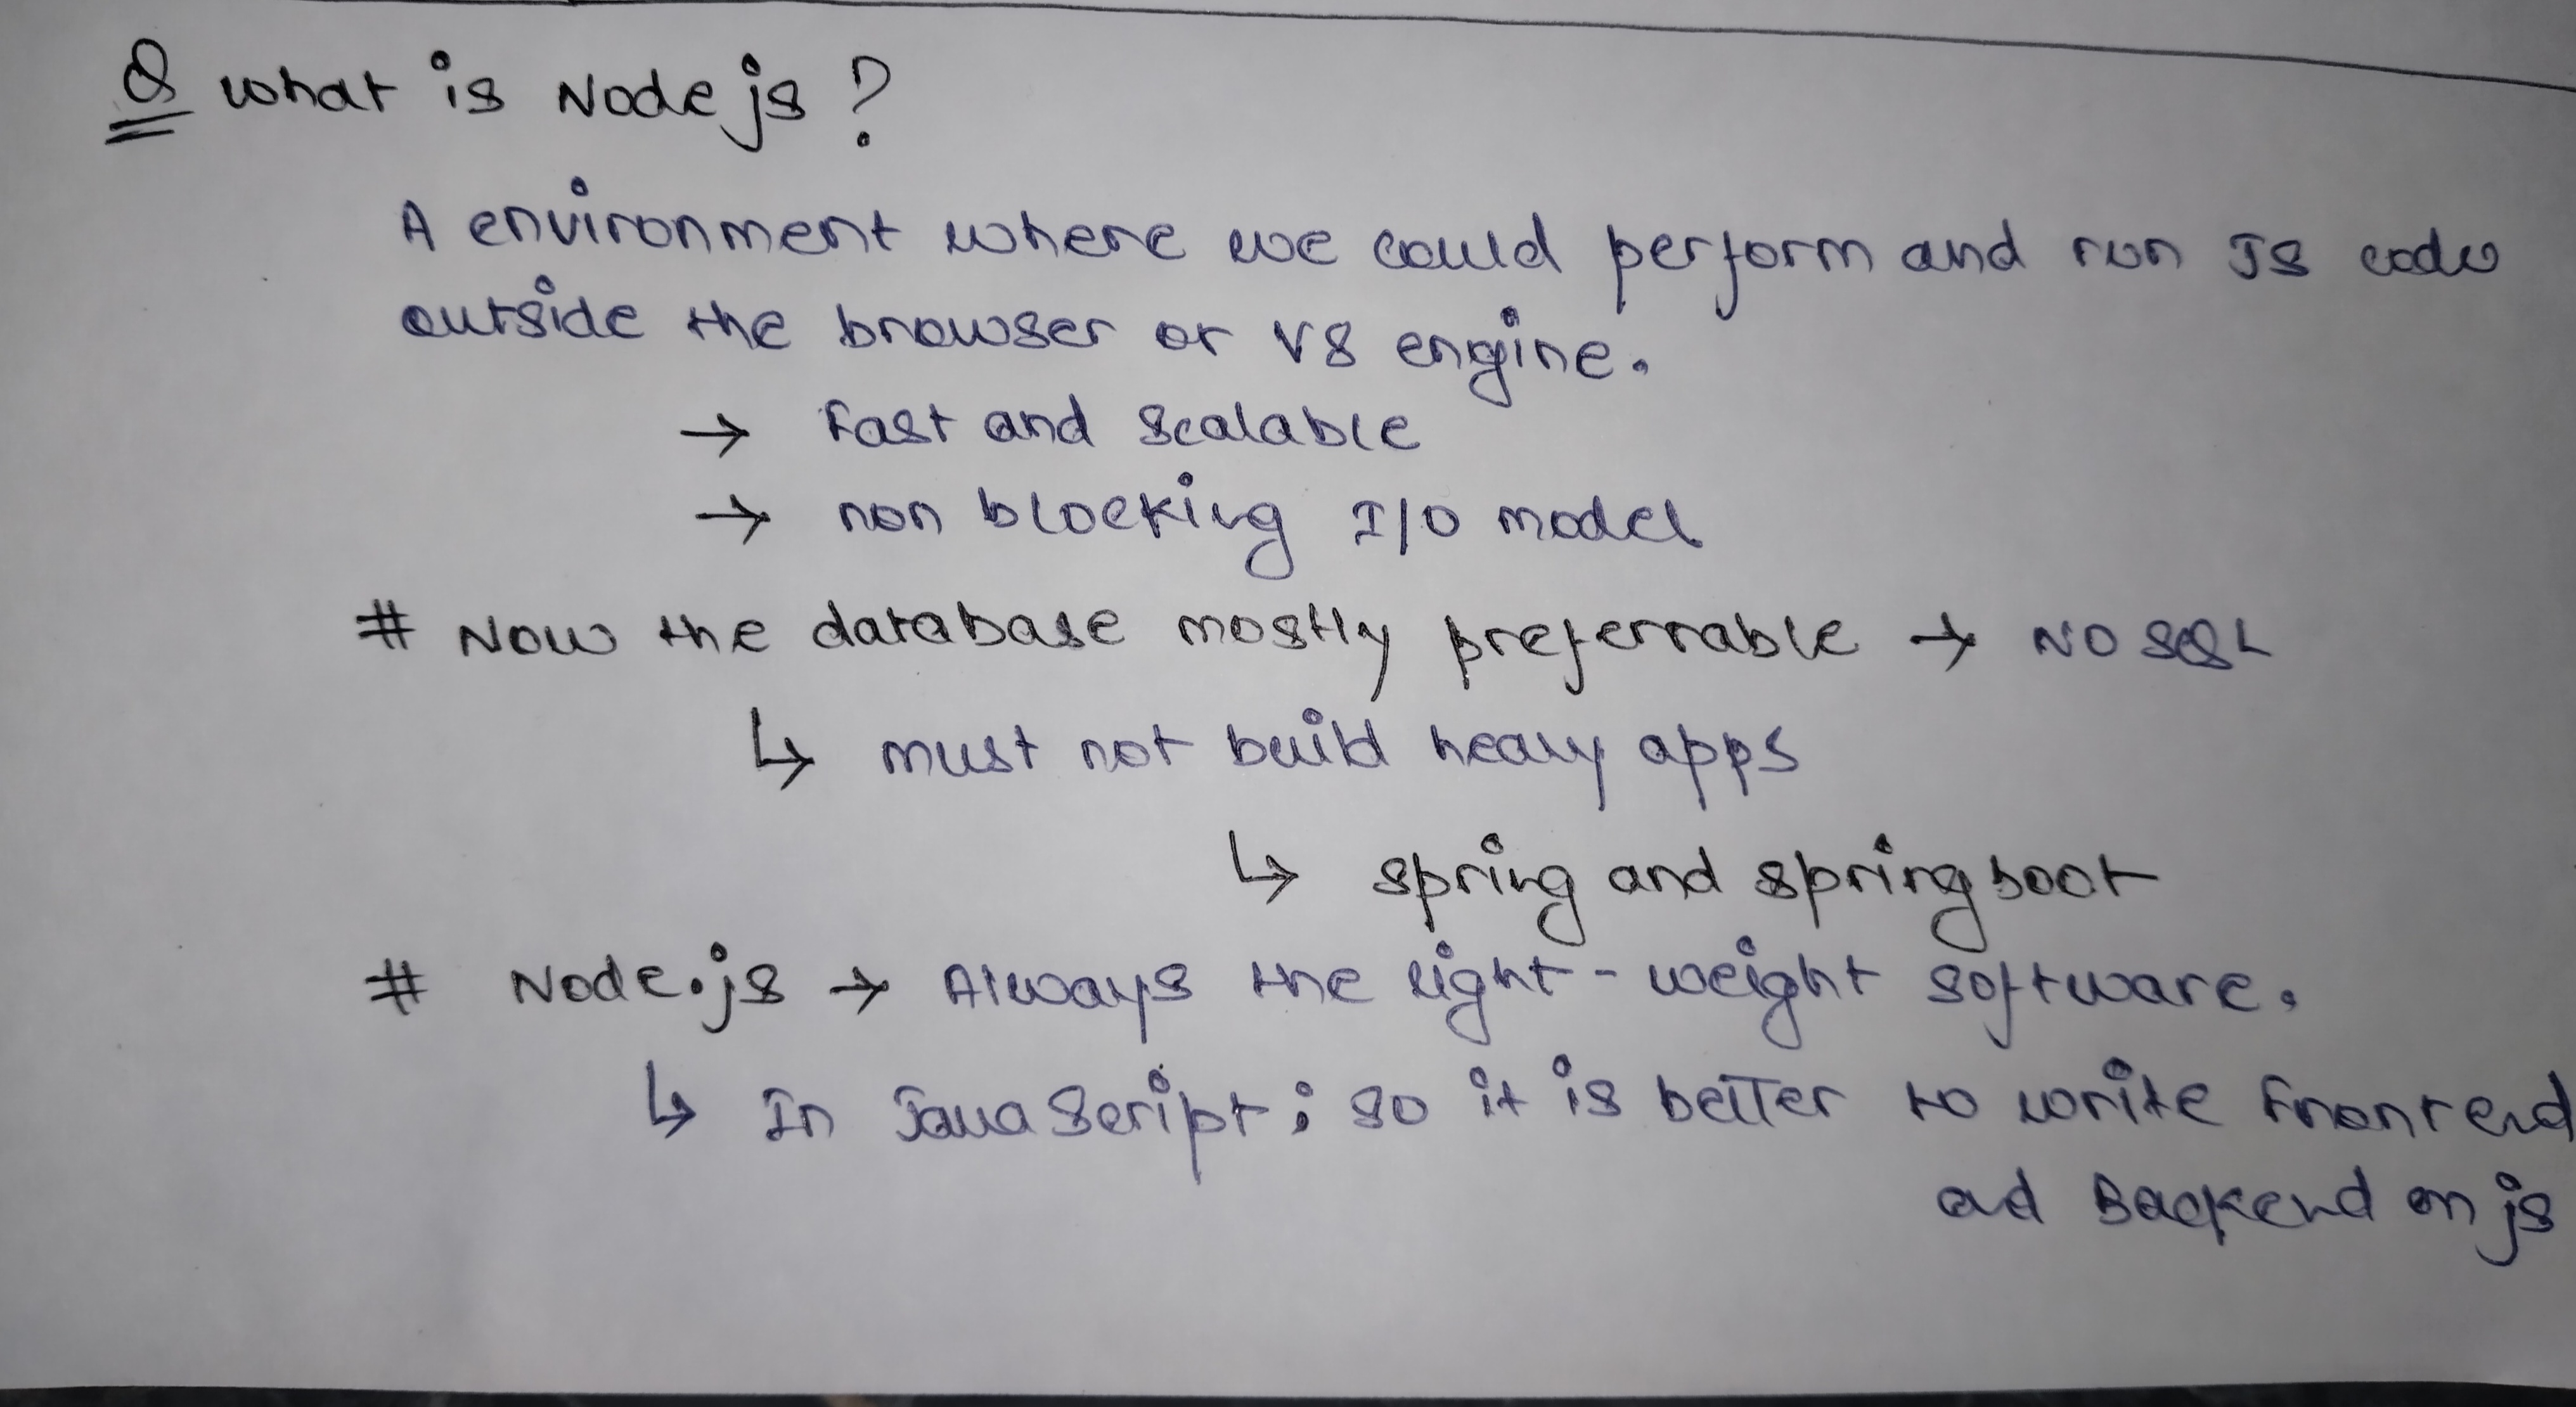 Q what is Node js ?
A environment where we could perform and run JS code
outside the browser or V8 engine.
→ Fast and scalable
→ non blocking I/O model
# Now the database mostly preferrable → NO SQL
↳ must not build heavy apps
↳ spring and spring boot
# Node.js → Always the light-weight software.
↳ In JavaScript ; so it is better to write Frontend
ad Backend on js